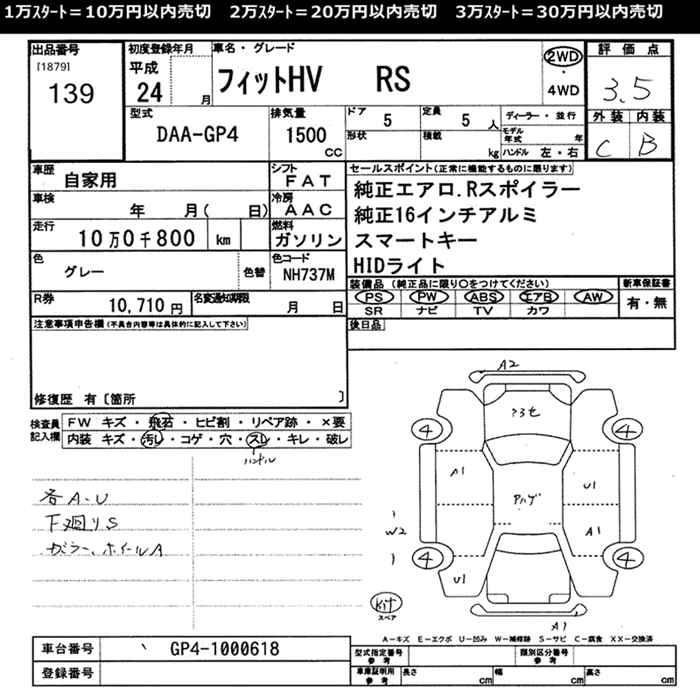 1万ｽﾀｰﾄ＝10万円以内売切　2万ｽﾀｰﾄ＝20万円以内売切　3万ｽﾀｰﾄ＝30万円以内売切
出品番号 初度登録年月 車名・グレード 評価点
[1879] 139 平成 24 月 フィットHV RS 2WD・4WD 3.5
型式 排気量 ドア 5 定員 5 人 ディーラー・並行 外装 内装
DAA-GP4 1500 cc 形状 積載 kg モデル年式 年 ハンドル 左・右 C B
車歴 自家用 シフト FAT セールスポイント(正常に機能するものに限ります)
車検 年 月( 日) 冷房 AAC 純正エアロ.Rスポイラー
純正16インチアルミ
走行 10万0千800 km 燃料 ガソリン スマートキー
HIDライト
色 グレー 色替 色コード NH737M 装備品(純正品に限り○をつけてください) 新車保証書
PS PW ABS エアB AW 有・無
SR ナビ TV カワ
R券 10,710 円 名変通知期限 月 日
注意事項申告欄(不具合内容等は具体的に記入して下さい) 後日品
修復歴 有〔箇所 〕
検査員記入欄 FW キズ・飛石・ヒビ割・リペア跡・×要
内装 キズ・汚レ・コゲ・穴・スレ・キレ・破レ
ハンドル
各A.U
下廻りS
ガラー、ホイールA
A2
4 4
A1 U1
W2 A1
4 4
U1
Kit
スペア
A1
A－キズ E－エクボ U－凹み W－補修跡 S－サビ C－腐食 XX－交換済
車台番号 GP4-1000618 型式指定番号 参考 類別区分番号 参考
登録番号 車庫証明用 参考 長さ cm 幅 cm 高さ cm